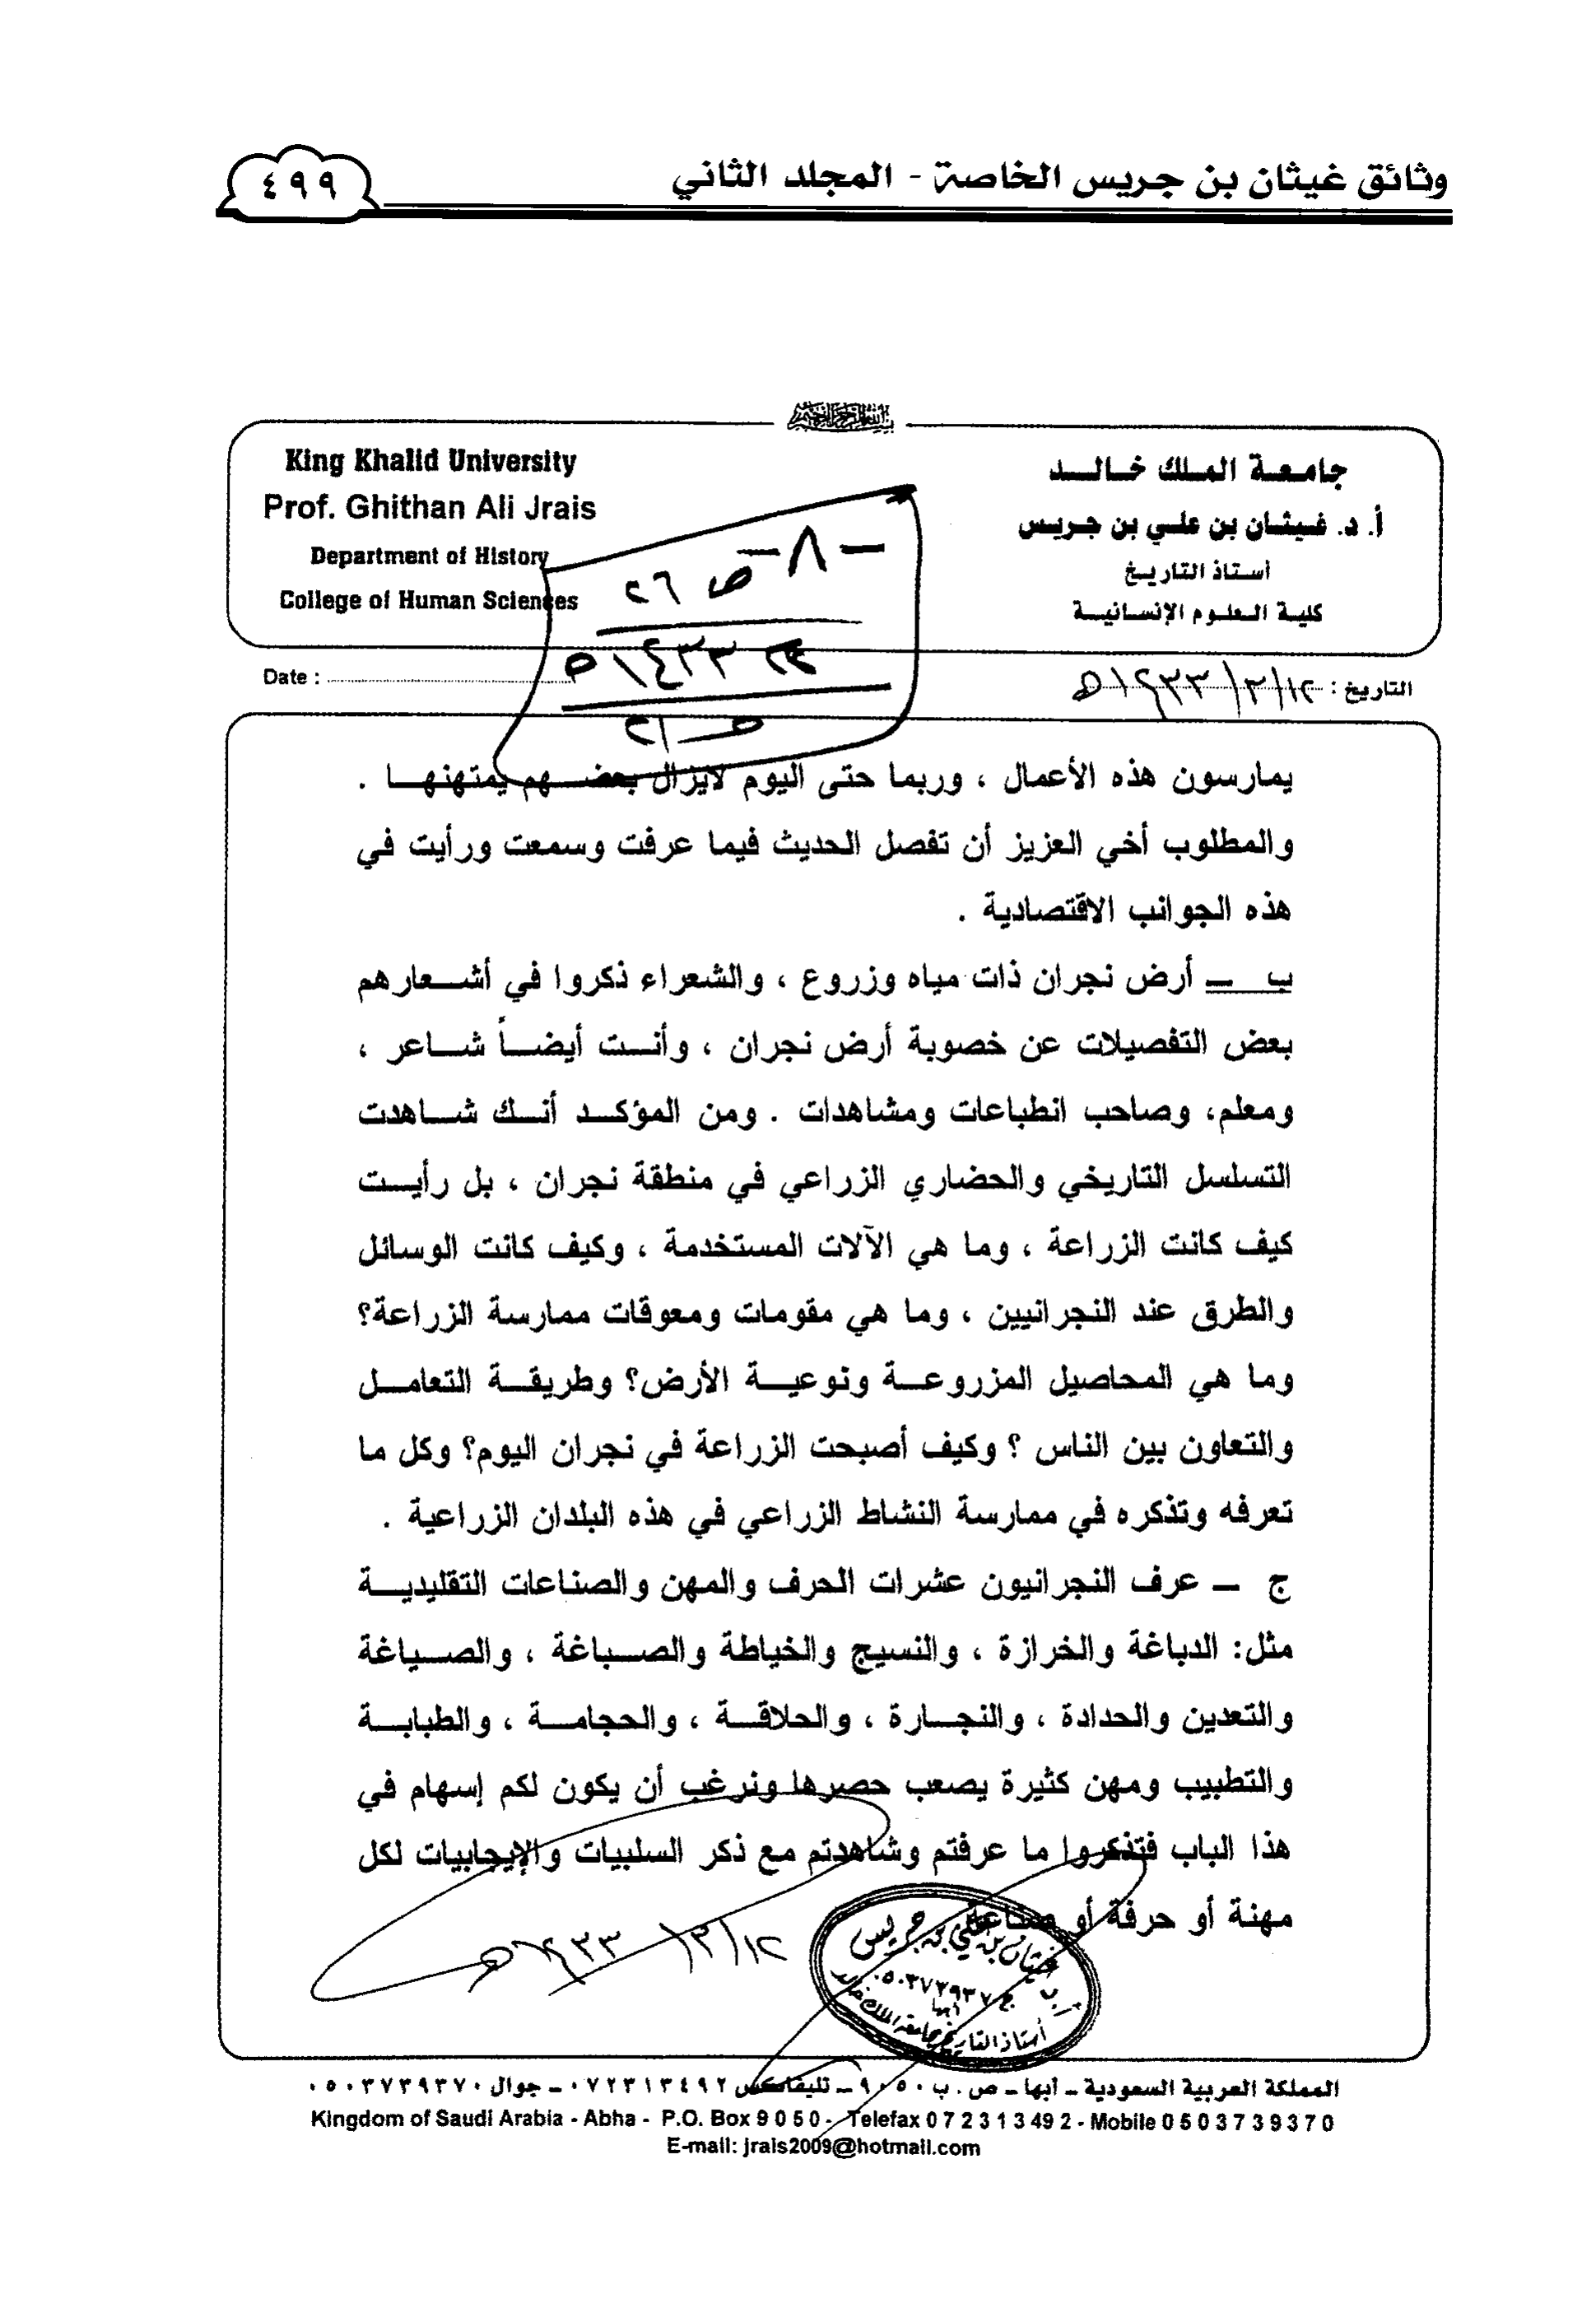 وثائق غيثان بن جريس الخاصة - المجلد الثاني
٤٩٩
King Khalid University
Prof. Ghithan Ali Jrais
Department of History
College of Human Sciences
جامعة الملك خالد
أ. د. غيثان بن علي بن جريس
أستاذ التاريخ
كلية العلوم الإنسانية
- ٨ -
ص ٢٦
١٤٣٣ هـ
Date :
التاريخ : ١٢/٣/١٤٣٣هـ
يمارسون هذه الأعمال ، وربما حتى اليوم لايزال بعضهم يمتهنها .
والمطلوب أخي العزيز أن تفصل الحديث فيما عرفت وسمعت ورأيت في
هذه الجوانب الاقتصادية .
ب – أرض نجران ذات مياه وزروع ، والشعراء ذكروا في أشعارهم
بعض التفصيلات عن خصوبة أرض نجران ، وأنت أيضاً شاعر ،
ومعلم، وصاحب انطباعات ومشاهدات . ومن المؤكد أنك شاهدت
التسلسل التاريخي والحضاري الزراعي في منطقة نجران ، بل رأيت
كيف كانت الزراعة ، وما هي الآلات المستخدمة ، وكيف كانت الوسائل
والطرق عند النجرانيين ، وما هي مقومات ومعوقات ممارسة الزراعة؟
وما هي المحاصيل المزروعة ونوعية الأرض؟ وطريقة التعامل
والتعاون بين الناس ؟ وكيف أصبحت الزراعة في نجران اليوم؟ وكل ما
تعرفه وتذكره في ممارسة النشاط الزراعي في هذه البلدان الزراعية .
ج – عرف النجرانيون عشرات الحرف والمهن والصناعات التقليدية
مثل: الدباغة والخرازة ، والنسيج والخياطة والصباغة ، والصياغة
والتعدين والحدادة ، والنجارة ، والحلاقة ، والحجامة ، والطبابة
والتطبيب ومهن كثيرة يصعب حصرها ونرغب أن يكون لكم إسهام في
هذا الباب فتذكروا ما عرفتم وشاهدتم مع ذكر السلبيات والإيجابيات لكل
مهنة أو حرفة أو صناعة
١٢/٣/١٤٣٣هـ
غيثان بن علي بن جريس
أبها
أستاذ التاريخ بجامعة الملك خالد
المملكة العربية السعودية – أبها – ص . ب ٩٠٥٠ – تليفاكس ٠٧٢٣١٣٤٩٢ – جوال ٠٥٠٣٧٣٩٣٧٠
Kingdom of Saudi Arabia - Abha - P.O. Box 9 0 5 0 - Telefax 0 7 2 3 1 3 49 2 - Mobile 0 5 0 3 7 3 9 3 7 0
E-mail: jrais2009@hotmail.com